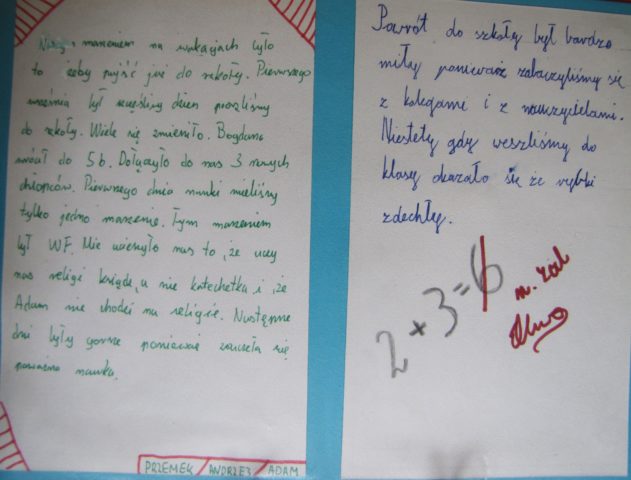 Naszym marzeniem na wakacjach było
to żeby pójść już do szkoły. Pierwszego
września był szczęśliwy dzień poszliśmy
do szkoły. Wiele się zmieniło. Bogdana
do 5b. Dołączyło do nas 3 nowych
chłopców. Pierwszego dnia nauki mieliśmy
tylko jedno marzenie. Tym marzeniem
był WF. Nie ucieszyło nas to, że uczy
nas religi ksiądz, a nie katechetka i, że
Adam nie chodzi na religię. Następne
dni były gorsze ponieważ zaczeła się
poważna nauka.
PRZEMEK / ANDRZEJ / ADAM
Powrót do szkoły był bardzo
miły ponieważ zobaczyliśmy się
z kolegami i z nauczycielami.
Niestety gdy weszliśmy do
klasy okazało się że rybki
zdechły.
2 + 3 = 6